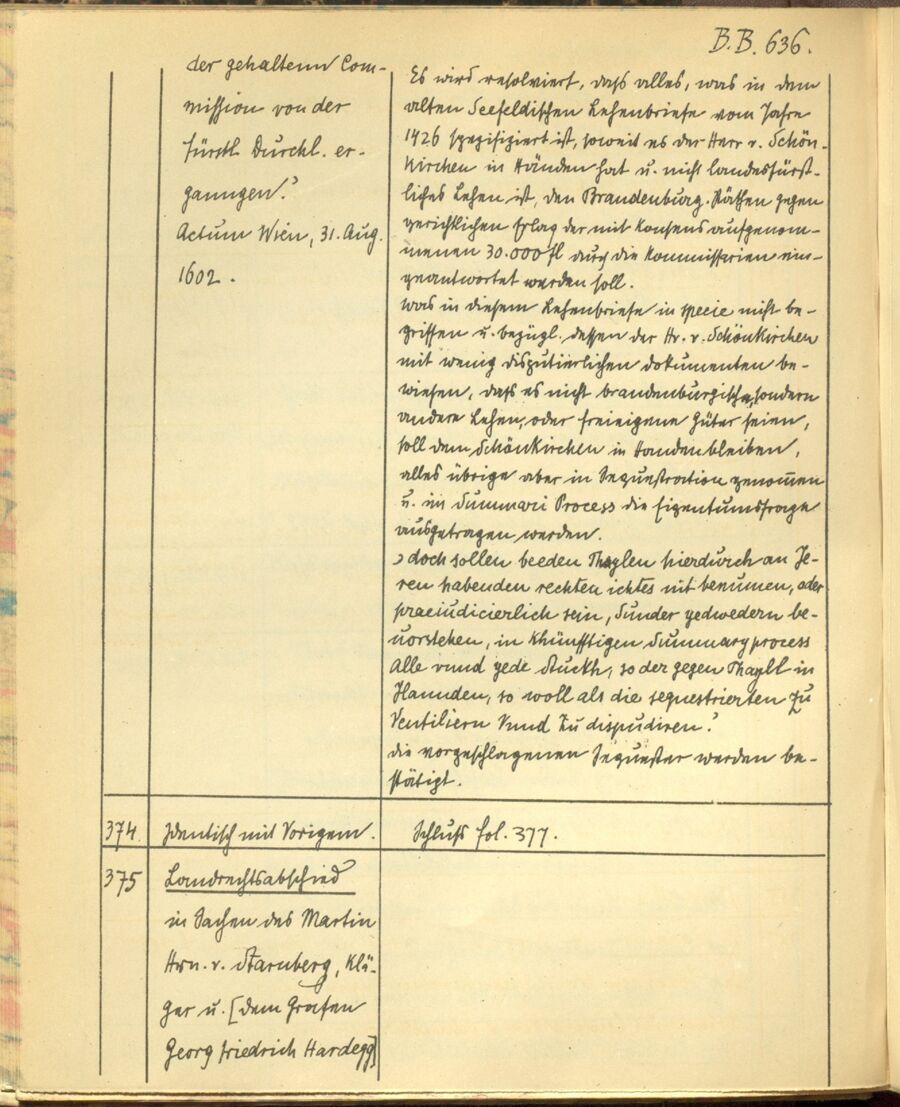 B.B. 636.
der gehaltenn Com-
mission von der
fürstl. Durchl. er-
ganngen.
Actum Wien, 31. Aug.
1602.
Es wird resolviert, daß alles, was in dem
alten Seefeldischen Lehenbriefe vom Jahre
1426 spezifiziert ist, soweit es der Herr v. Schön-
kirchen in Händen hat u. nicht landesfürst-
liches Lehen ist, den Brandenburg. Räthen gegen
gerichtlichen Erlag der mit Konsens aufgenom-
menen 30.000 fl durch die Kommissarien ein-
geantwortet werden soll.
Was in diesem Lehenbriefe in specie nicht be-
griffen u. bezügl. dessen der Hr. v. Schönkirchen
mit wenig disputierlichen Dokumenten be-
wiesen, daß es nicht brandenburgische, sondern
andere Lehen, oder freieigene Güter seien,
soll dem Schönkirchen in Handen bleiben,
alles übrige aber in Sequestration genommen
u. im Summari Process die Eigentumsfrage
ausgetragen werden.
> doch sollen beeden Thaylen hierdurch an Je-
ren habenden rechten ichtes nit benumen, oder
praeiudicierlich sein, sunder yedwedern be-
uorstehen, in khünfftigen Summary process
Alle vnnd yede stuckh, so der gegen Thayll in
Hannden, so woll als die sequestrierten zu
Ventiliern Vnnd zu dispudiren.
Die vorgeschlagenen Sequester werden be-
stätigt.
374 Identisch mit Vorigem. Schluß fol. 377.
375 Landrechtsabschied
in Sachen des Martin
Hrn. v. Starnberg, Klä-
ger u. [dem Grafen
Georg Friedrich Hardegg]